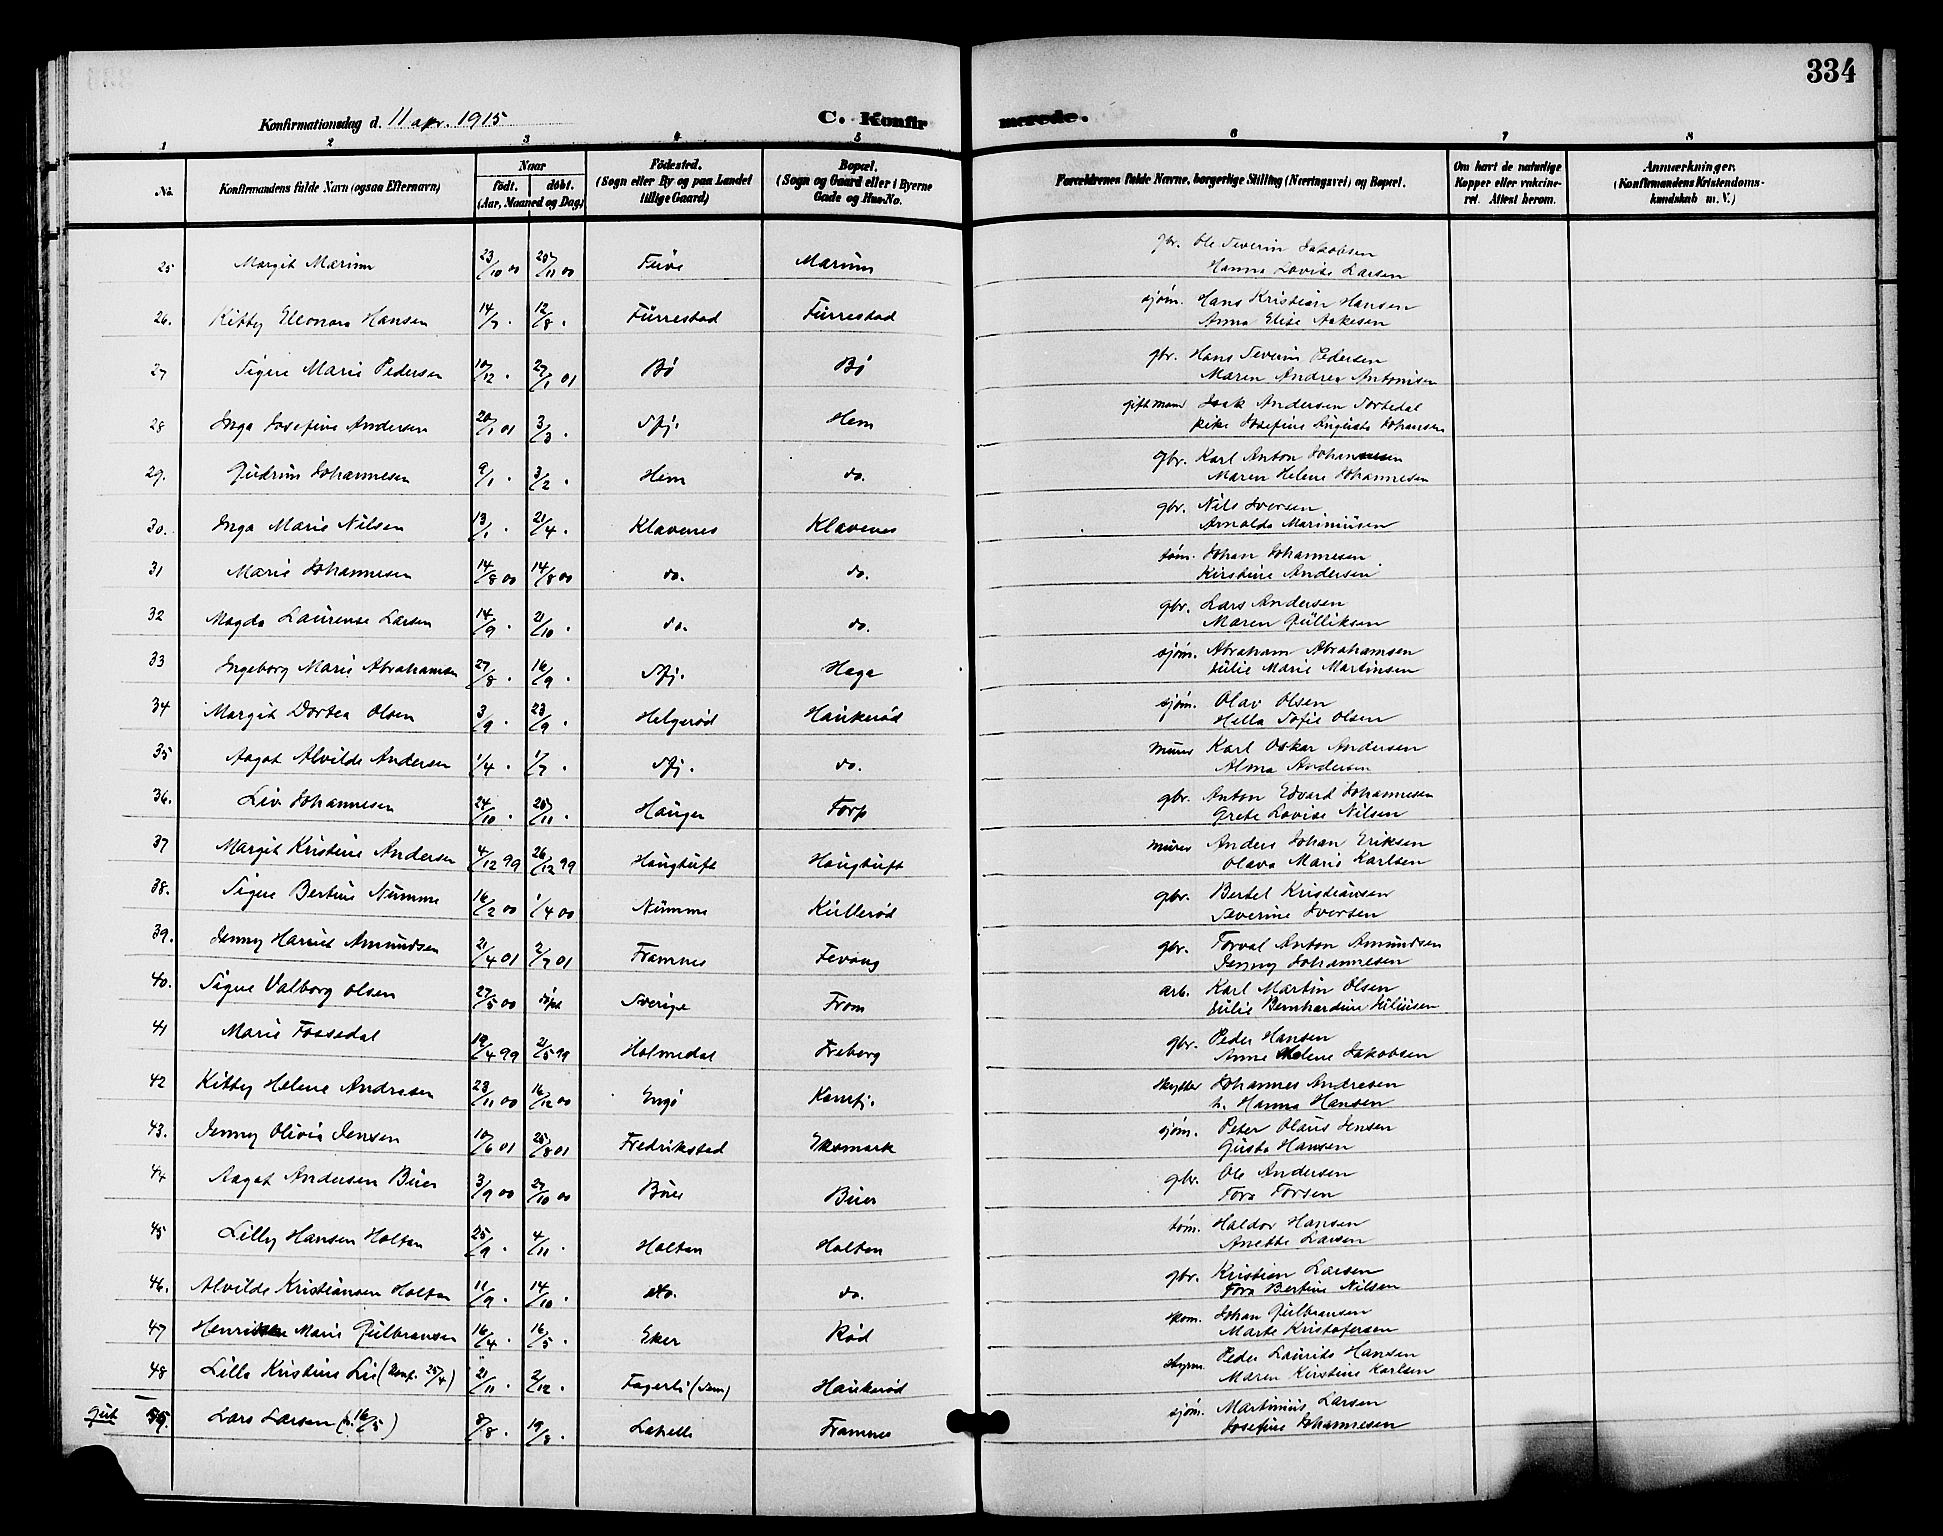 334
Konfirmationsdag d. 11 apr. 1915 C. Konfirmerede.
1 2 3 4 5 6 7 8
No. Konfirmandens fulde Navn (ogsaa Efternavn) Naar født. døbt. (Aar, Maaned og Dag) Fødested. (Sogn eller By og paa Landet tillige Gaard) Bopæl. (Sogn og Gaard eller i Byerne Gade og Hus-No. Forældrenes fulde Navne, borgerlige Stilling (Næringsvei) og Bopæl. Om havt de naturlige Kopper eller vakcineret. Attest herom. Anmærkninger. (Konfirmandens Kristendomskundskab m. V.)
25 Margit Marum 23/10 00 25/11 00 Marum gbr. Ole Severin Jakobsen
Hanna Lovise Larsen
26. Kitty Elenora Hansen 14/7 . 12/8 . Furrestad Furrestad sjøm. Hans Kristian Hansen
Anna Elise Aakesen
27 Signe Marie Pedersen 10/12 . 27/1 01 Bø Bø gbr. Hans Severin Pedersen
Maren Andrea Antonisen
28 Inga Josefine Andersen 20/1 01 3/3 . Sfj. Hem gift mand Isak Andersen Tortedal
pike Josefine Augusta Johansen
29. Gudrun Johannesen 9/1 . 3/2 . Hem do. gbr. Karl Anton Johannesen
Maren Helene Johannesen
30. Inga Marie Nilsen 13/1 . 21/4 . Klavenes Klavenes gbr. Nils Iversen
Arnolda Marinusen
31 Marie Johannesen 14/8 00 14/8 00 do. do. tøm. Johan Johannesen
Kirstine Andersen
32 Magda Laurense Larsen 14/9 . 21/10 . do. do. gbr. Lars Andersen
Maren Gulliksen
33 Ingeborg Marie Abrahamsen 27/8 . 16/9 . Sfj. Haga sjøm. Abraham Abrahamsen
Julie Marie Martinsen
34 Margit Dortea Olsen 3/9 . 23/9 . Helgerød Haukerød sjøm. Olav Olsen
Hella Sofie Olsen
35 Aagot Alvilde Andersen 1/4 . 1/7 . Sfj. do. murer Karl Oskar Andersen
Alma Andersen
36. Liv Johannesen 24/10 . 25/11 . Haugen Torp gbr. Anton Edvard Johannesen
Grete Lovise Nilsen
37 Margit Kristine Andersen 4/12 99 26/12 99 Haugtuft Haugtuft murer Anders Johan Eriksen
Olava Marie Karlsen
38. Signe Bertine Numme 16/2 00 1/4 00 Numme Kullerød gbr. Bertel Kristiansen
Severine Iversen
39. Jenny Harriet Amundsen 21/4 01 2/7 01 Framnes Fevang gbr. Torval Anton Amundsen
Jenny Johannesen
40. Signe Valborg Olsen 27/5 00 Sverige From arb. Karl Martin Olsen
Julie Bernhardine Juliusen
41 Marie Fossedal 19/4 99 21/5 99 Holmedal Freberg gbr. Peder Hansen
Anne Malene Jakobsen
42 Kitty Helene Andresen 23/11 00 16/12 00 Engø Kamfj. skytter Johannes Andresen
h. Hanna Hansen
43. Jenny Olivia Jensen 10/6 01 25/8 01 Fredrikstad Skarmark sjøm. Peter Olaus Jensen
Gusta Hansen
44 Aagot Andersen Buer 3/9 00 27/10 00 Buer Buer gbr. Ole Andersen
Tora Torsen
45 Lilly Hansen Holtan 25/9 . 4/11 . Holtan Holtan tøm. Haldor Hansen
Anette Larsen
46. Alvilde Kristiansen Holtan 11/9 . 14/10 . do. do. gbr. Kristian Larsen
Tora Bertine Nilsen
47 Henrikke Marie Gulbransen 16/4 . 16/5 . Eker Rød skom. Johan Gulbransen
Marte Kristofersen
48 Lilla Kristine Lie (konf. 25/4) 21/11 . 2/12 . Fagerli (Sem) Haukerød styrm. Peder Laurits Hansen
Maren Kirstine Karlsen
gut 55. Lars Larsen (k. 16/5) 8/8 . 19/8 . Lahelle Framnes sjøm. Martinius Larsen
Josefine Johannesen